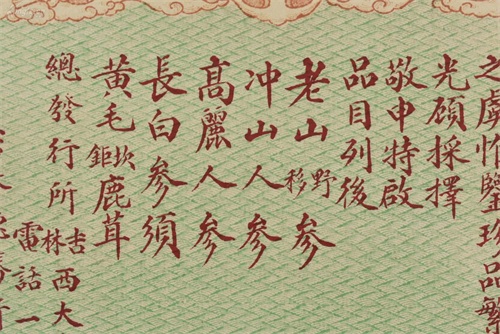 之處惟鑒珍品繁
光顧採擇
敬申特啟
品目列後
老山野移參
冲山人參
高麗人參
長白參須
黃毛坎鉅鹿茸
總發行所吉林西大
電話一